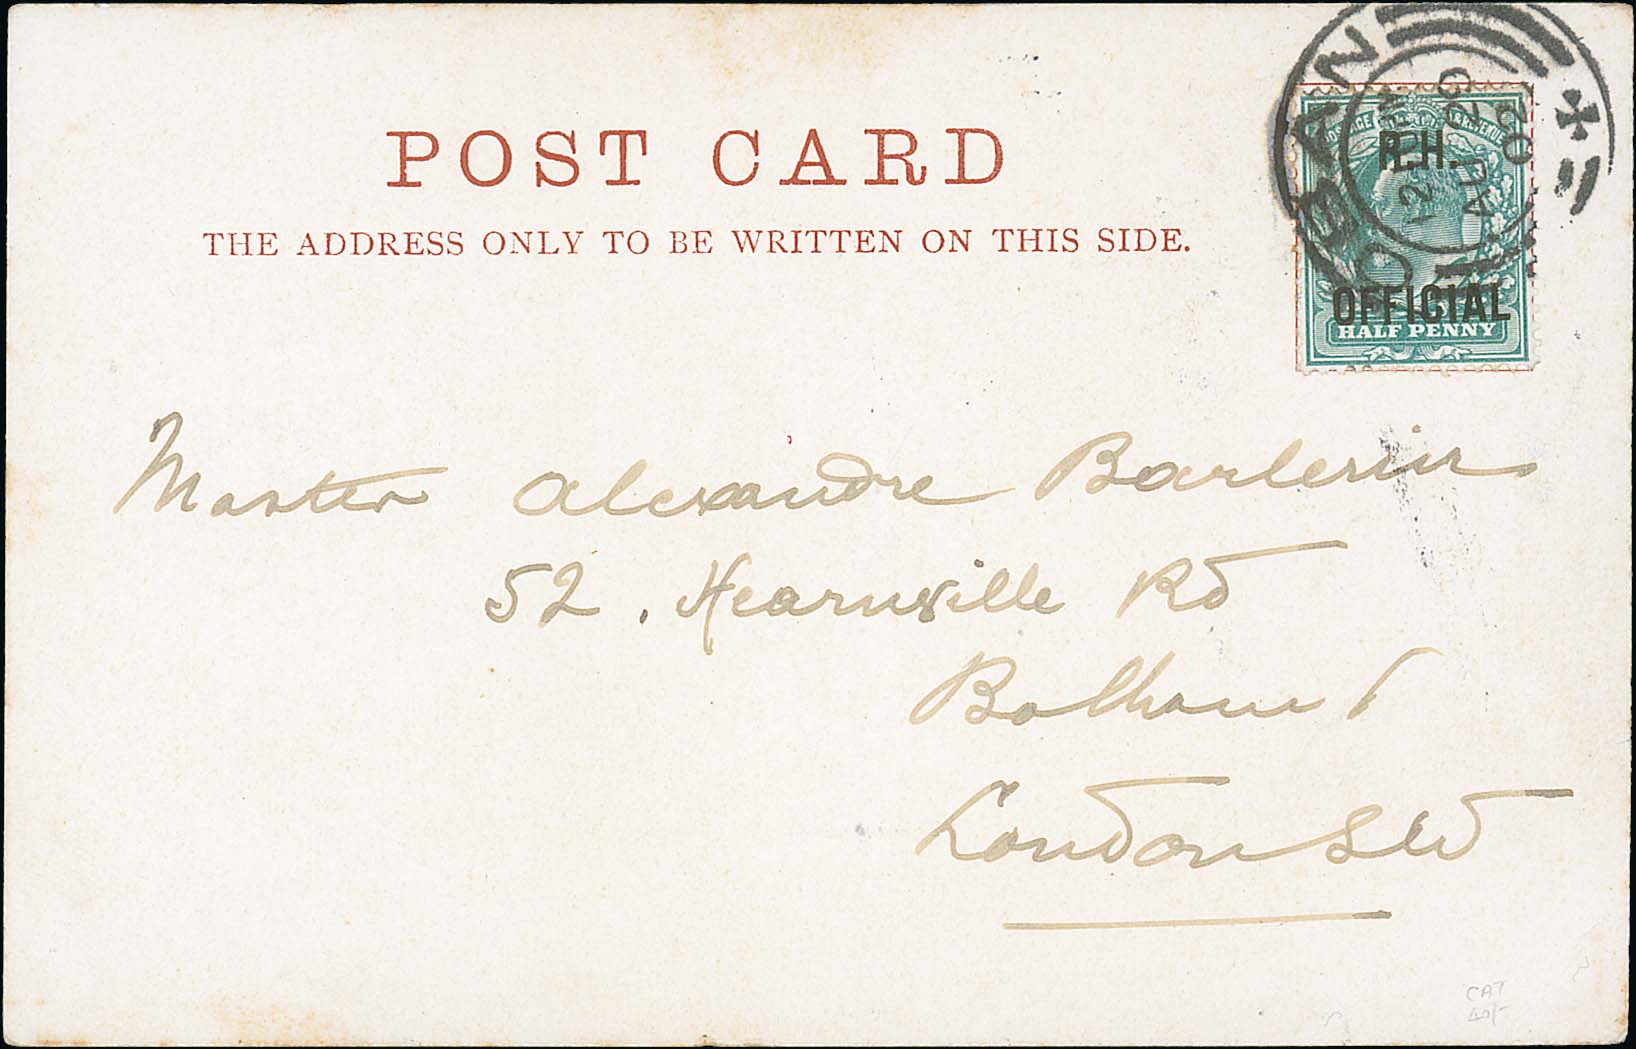 POST CARD
THE ADDRESS ONLY TO BE WRITTEN ON THIS SIDE.
OBAN
AU 20
02
POSTAGE & REVENUE
R.H.
OFFICIAL
HALF PENNY
Master Alexandre Barlerin
52, Hearnville Rd
Balham
London SW
CAT